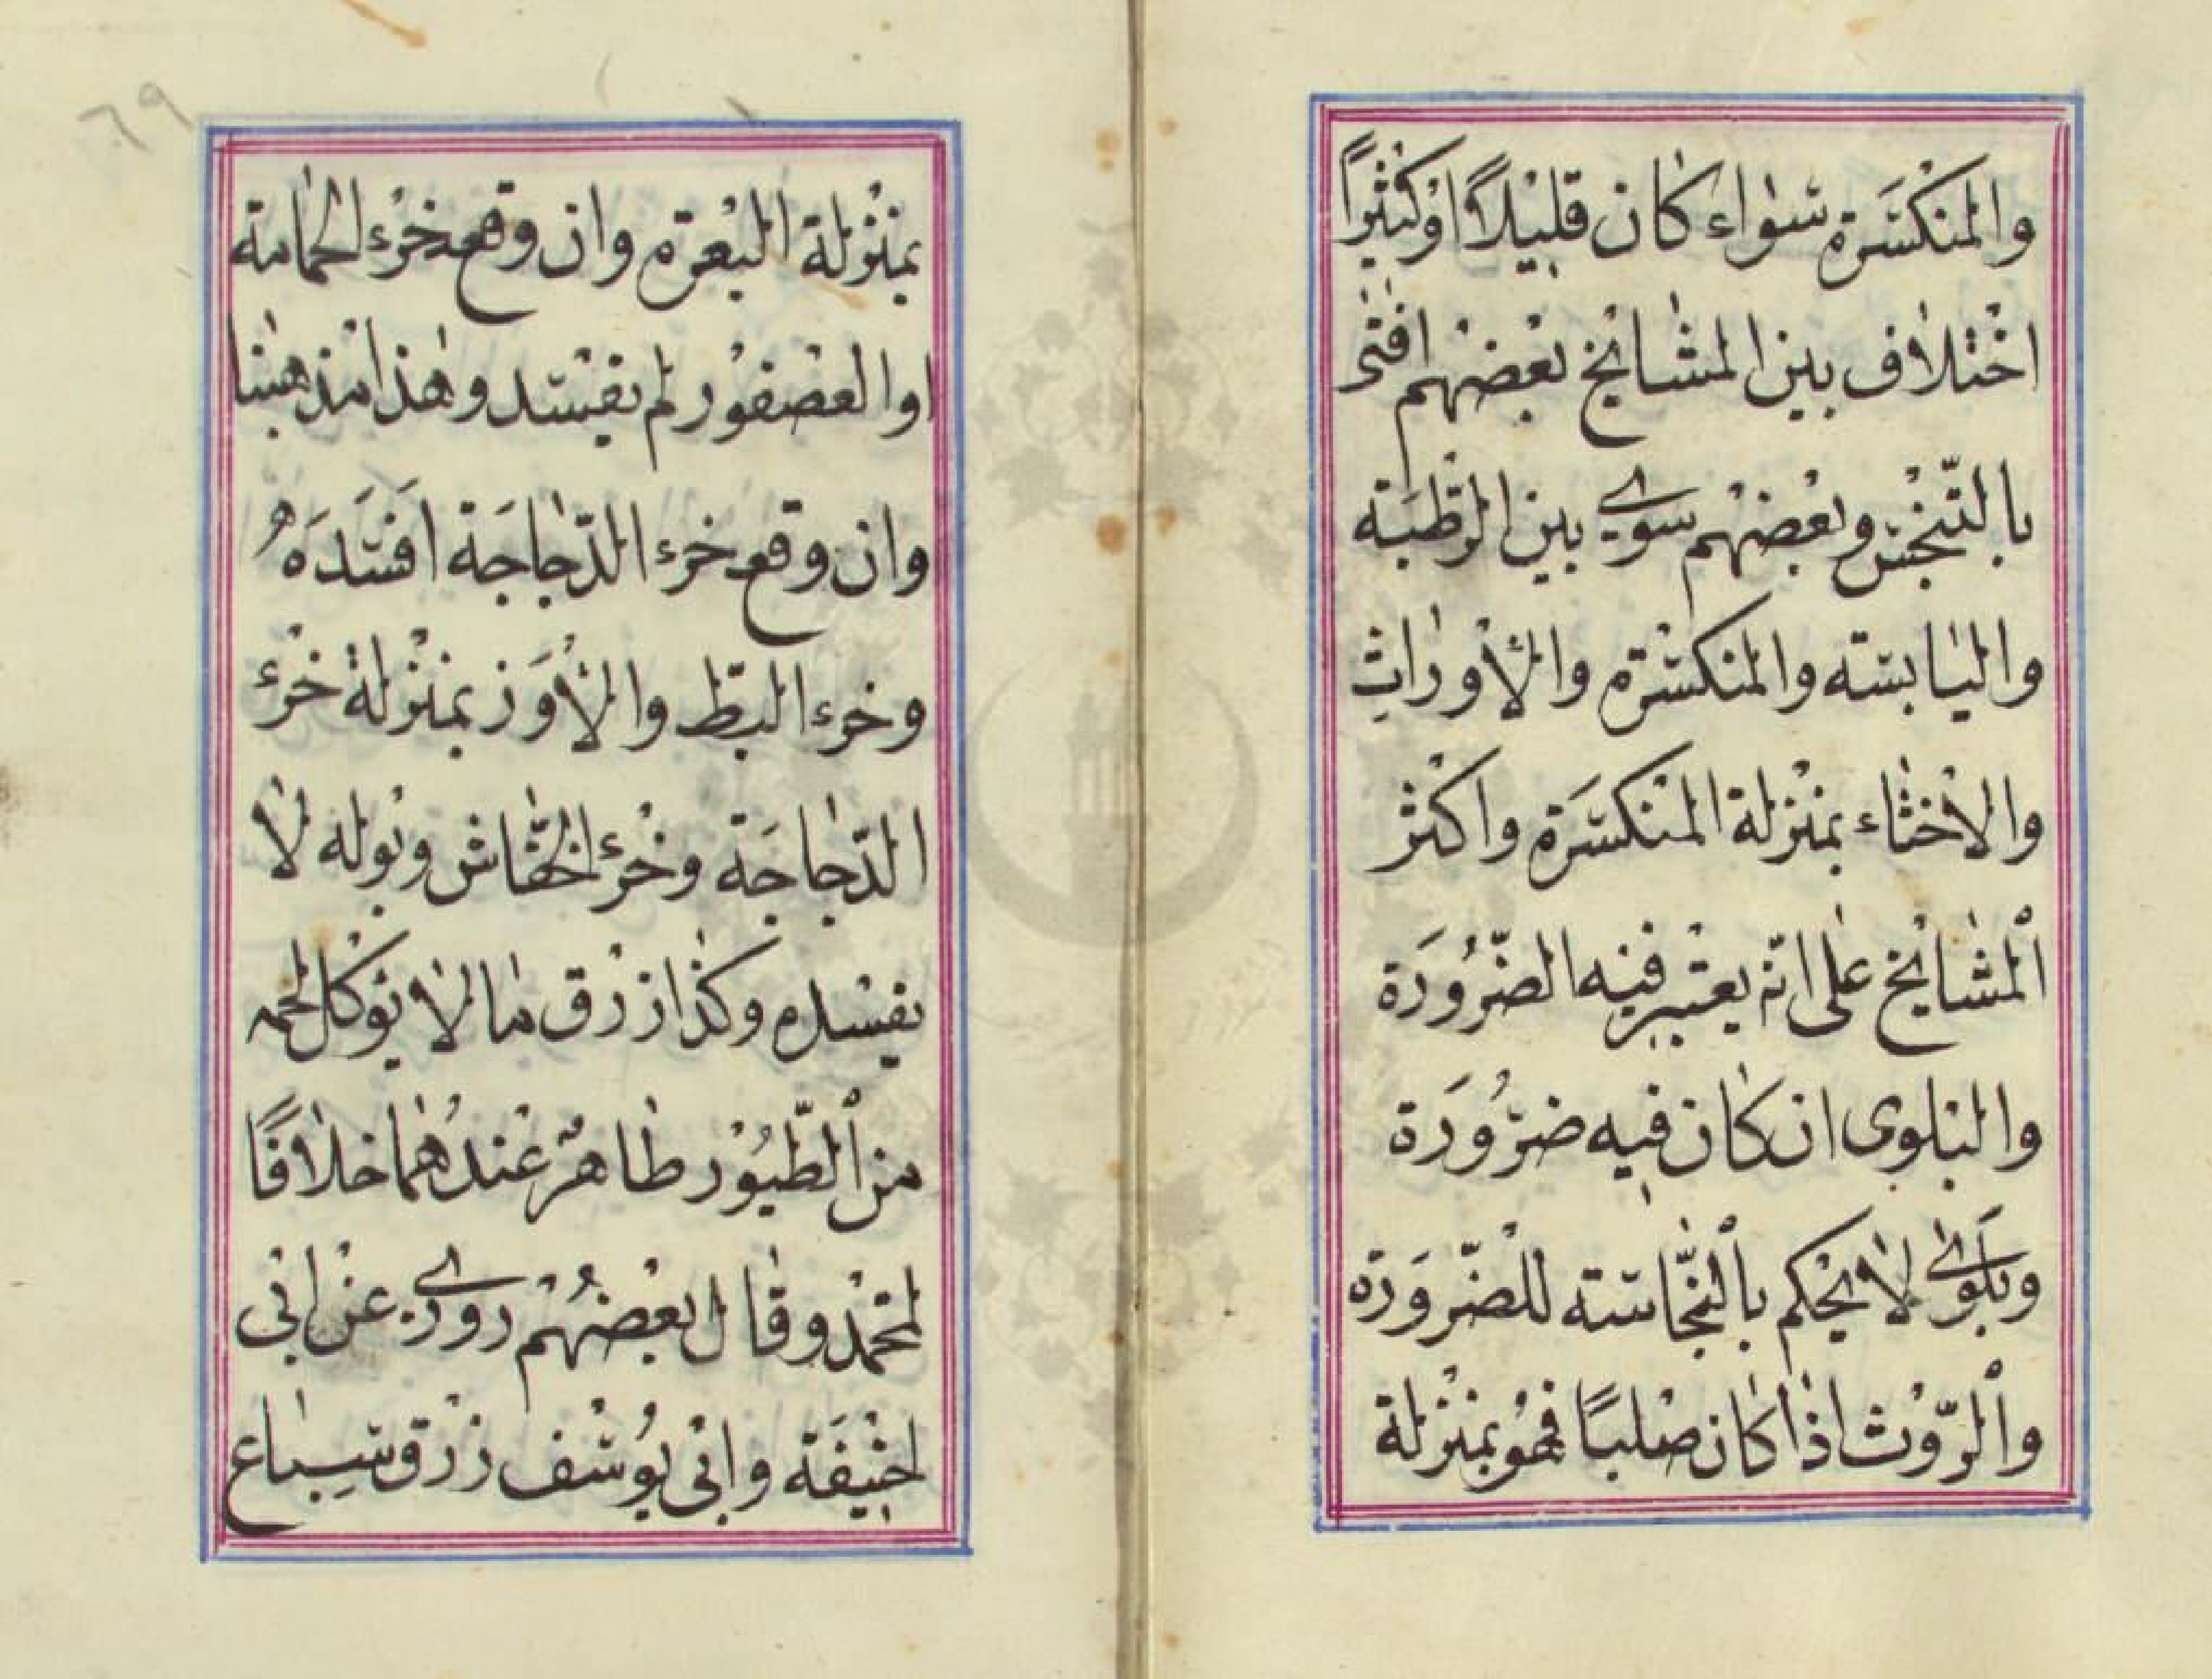 والمنكسَرة سواء كان قليلاً اوكثيراً
اختلاف بين المشايخ بعضهم افتى
بالتنجس وبعضهم سوى بين الرّطبَة
واليابسته والمنكسرة والأوراث
والاخثاء بمنزلة المنكسَرة واكثر
المشايخ على انّه يعتبر فيه الضّرُورَة
والبلوى ان كان فيه ضرُورَة
وبَلوى لا يحكم بالنّجاسته للضّروَرة
والرّوث اذا كان صلبًا فهو بمنزلة
٦٩
بمنزلة البعرة وان وقع خرء الحمامة
اوالعصفور لم يفسد وهذا مذهبنا
وان وقع خرء الدّجاجَة افسَدَهُ
وخرء البطّ والأوَز بمنزلة خرء
الدّجاجَة وخرء الخفّاش وبوله لا
يفسده وكذا زرق ما لا يؤكل لحمه
من الطّيُور طاهرٌ عندهُما خلافًا
لمحمد وقال بعضهُم روى عن ابى
احنيفَة وابى يُوسف زرق سِباع